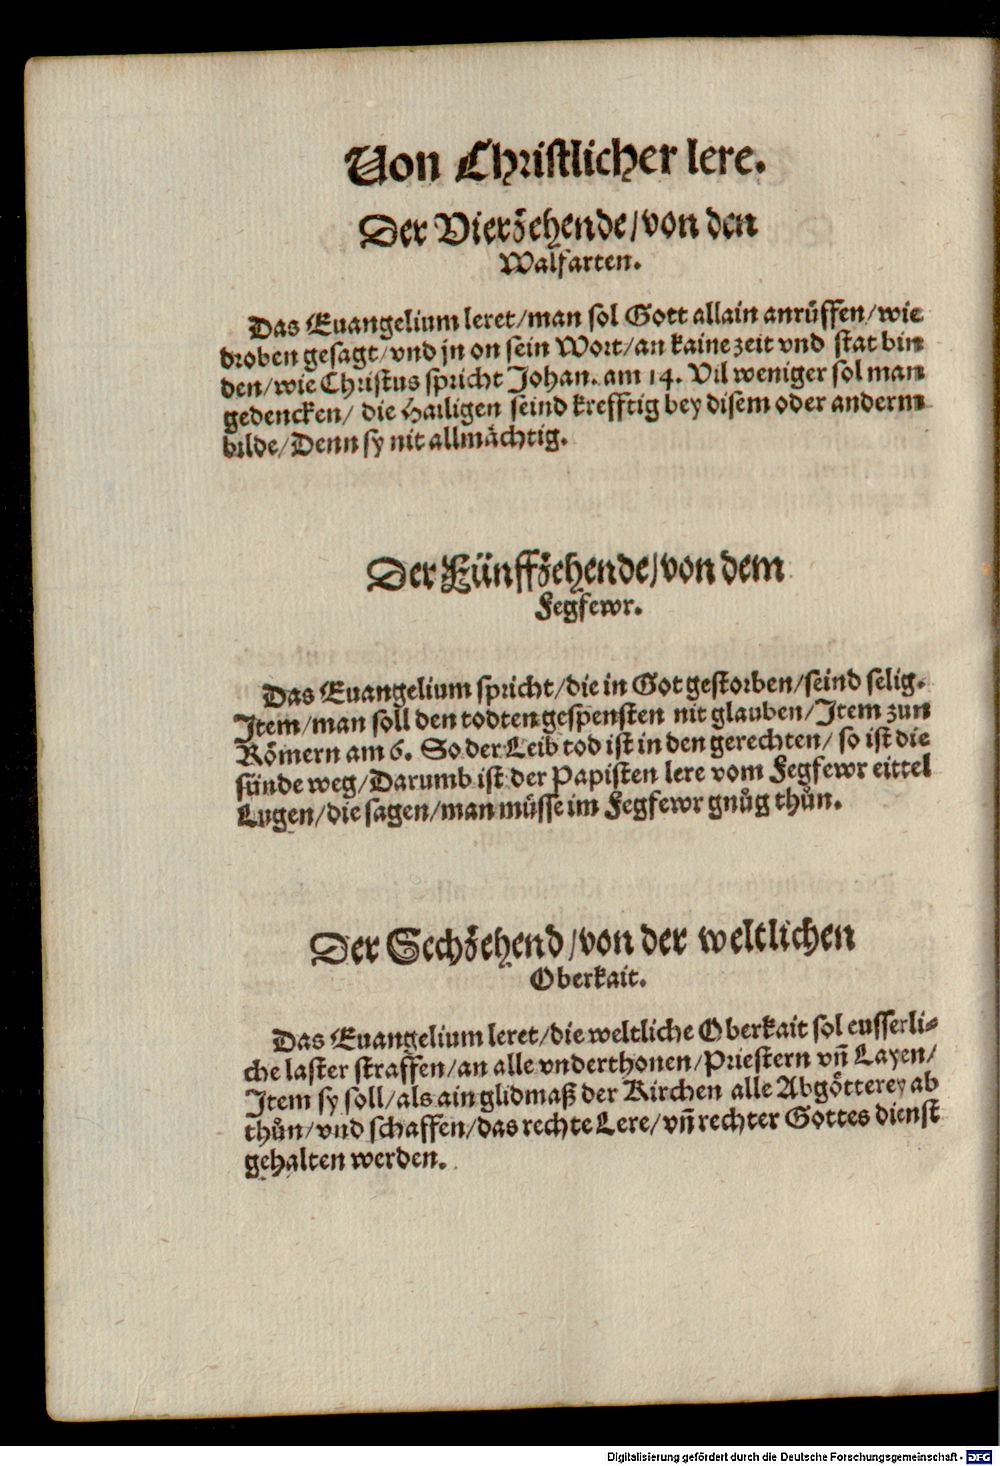 Von Christlicher lere.
Der Vierzehende/von den
Walfarten.
Das Euangelium leret/man sol Gott allain anrüffen/wie
droben gesagt/vnd jn on sein Wort/an kaine zeit vnd stat bin
den/wie Christus spricht Johan. am 14. Vil weniger sol man
gedencken/ die Hailigen seind krefftig bey disem oder anderm
bilde/Denn sy nit allmächtig.
Der Fünffzehende/von dem
Fegfewr.
Das Euangelium spricht/die in Got gestorben/seind selig.
Item/man soll den todten gespensten nit glauben/Item zun
Römern am 6. So der Leib tod ist in den gerechten/ so ist die
sünde weg/Darumb ist der Papisten lere vom Fegfewr eittel
Lugen/die sagen/man müsse im Fegfewr gnůg thůn.
Der Sechzehend/von der weltlichen
Oberkait.
Das Euangelium leret/die weltliche Oberkait sol eusserli⸗
che laster straffen/an alle vnderthonen/Priestern vñ Layen/
Item sy soll/als ain glidmaß der Kirchen alle Abgötterey ab
thůn/vnd schaffen/das rechte Lere/vñ rechter Gottes dienst
gehalten werden.
Digitalisierung gefördert durch die Deutsche Forschungsgemeinschaft - DFG